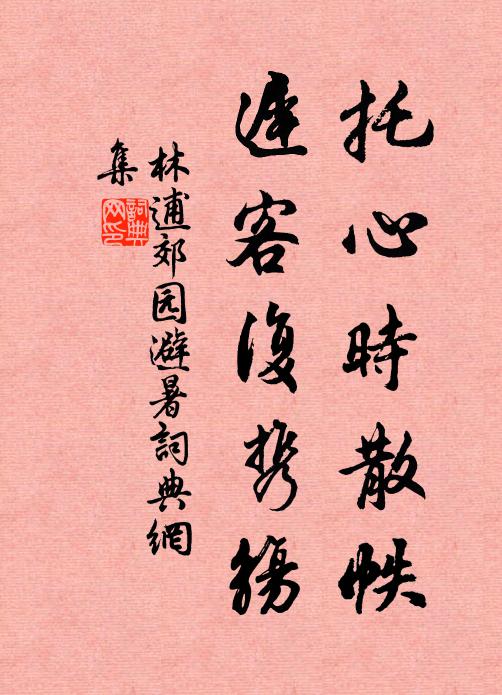 托心時散帙
遲客復携觴
林逋郊园避暑詞典網
集
詞典網印